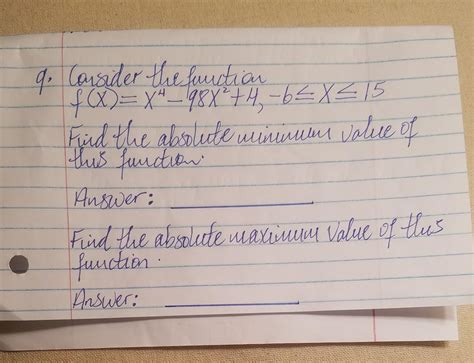 9. Consider the function
f(X)= X⁴-98X²+4, -6≤X≤15
Find the absolute minimum value of
this function.
Answer:
Find the absolute maximum value of this
function.
Answer: